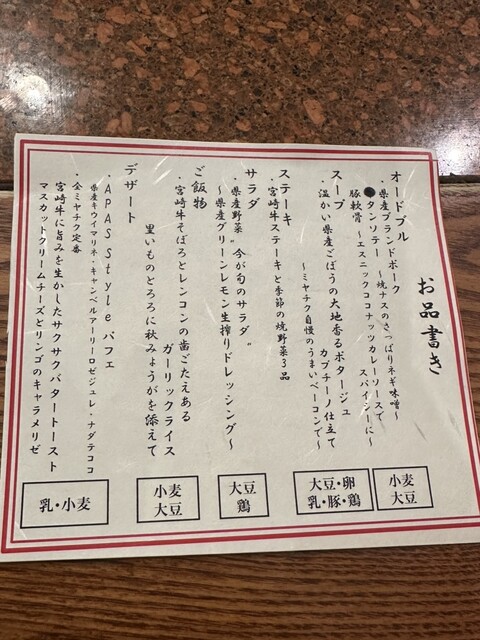 お品書き
オードブル
・県産ブランドポーク
●タンソテー ~焼ナスのさっぱりネギ味噌~
豚軟骨 ~エスニックココナッツカレーソースで
スパイシーに~
スープ
・温かい県産ごぼうの大地香るポタージュ
カプチーノ仕立て
~ミヤチク自慢のうまいベーコンで~
ステーキ
・宮崎牛ステーキと季節の焼野菜3品
サラダ
・県産野菜〝今が旬のサラダ〟
~県産グリーンレモン生搾りドレッシング~
ご飯物
・宮崎牛そぼろとレンコンの歯ごたえある
ガーリックライス
里いものとろろに秋みょうがを添えて
デザート
・APAS Style パフェ
県産キウイマリネ・キャンベルアーリーロゼジュレ・ナタデココ
・全ミヤチク定番
宮崎牛に旨みを生かしたサクサクバタートースト
マスカットクリームチーズとリンゴのキャラメリゼ
小麦
大豆
大豆・卵
乳・豚・鶏
大豆
鶏
小麦
大豆
乳・小麦